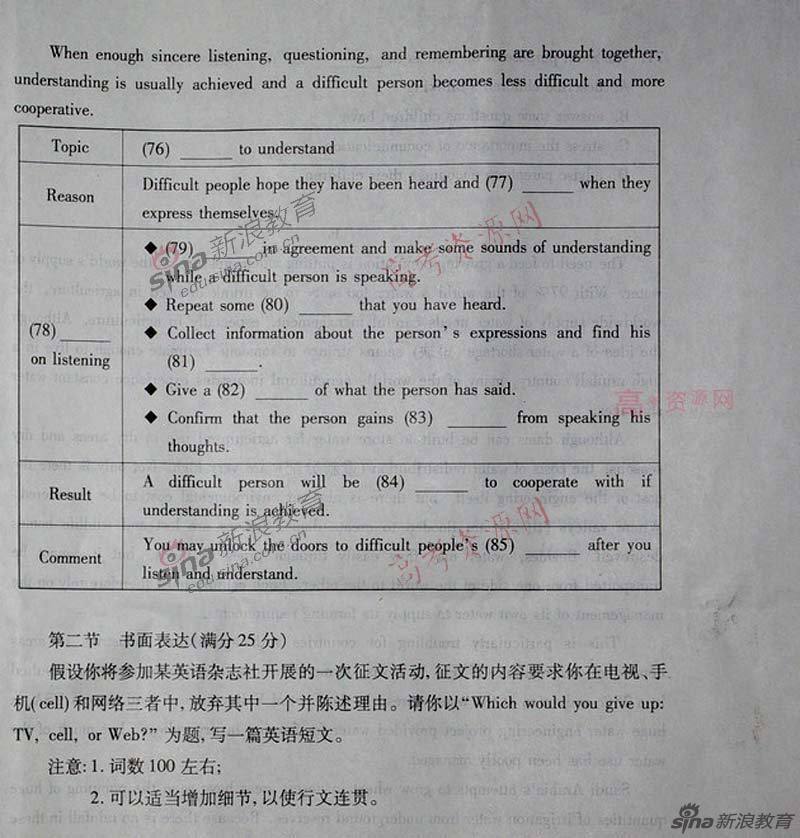 When enough sincere listening, questioning, and remembering are brought together,
understanding is usually achieved and a difficult person becomes less difficult and more
cooperative.
Topic
(76) ______ to understand
Reason
Difficult people hope they have been heard and (77) ______ when they
express themselves.
(78) ______
on listening
◆ (79) ______ in agreement and make some sounds of understanding
while a difficult person is speaking.
◆ Repeat some (80) ______ that you have heard.
◆ Collect information about the person's expressions and find his
(81) ______.
◆ Give a (82) ______ of what the person has said.
◆ Confirm that the person gains (83) ______ from speaking his
thoughts.
Result
A difficult person will be (84) ______ to cooperate with if
understanding is achieved.
Comment
You may unlock the doors to difficult people's (85) ______ after you
listen and understand.
第二节 书面表达(满分25分)
假设你将参加某英语杂志社开展的一次征文活动,征文的内容要求你在电视、手
机(cell)和网络三者中,放弃其中一个并陈述理由。请你以“Which would you give up:
TV, cell, or Web?”为题,写一篇英语短文。
注意:1. 词数100左右;
2. 可以适当增加细节,以使行文连贯。
sina新浪教育
edu.sina.com.cn
高考资源网
高考资源网
sina新浪教育
edu.sina.com.cn
高考资源网
sina新浪教育